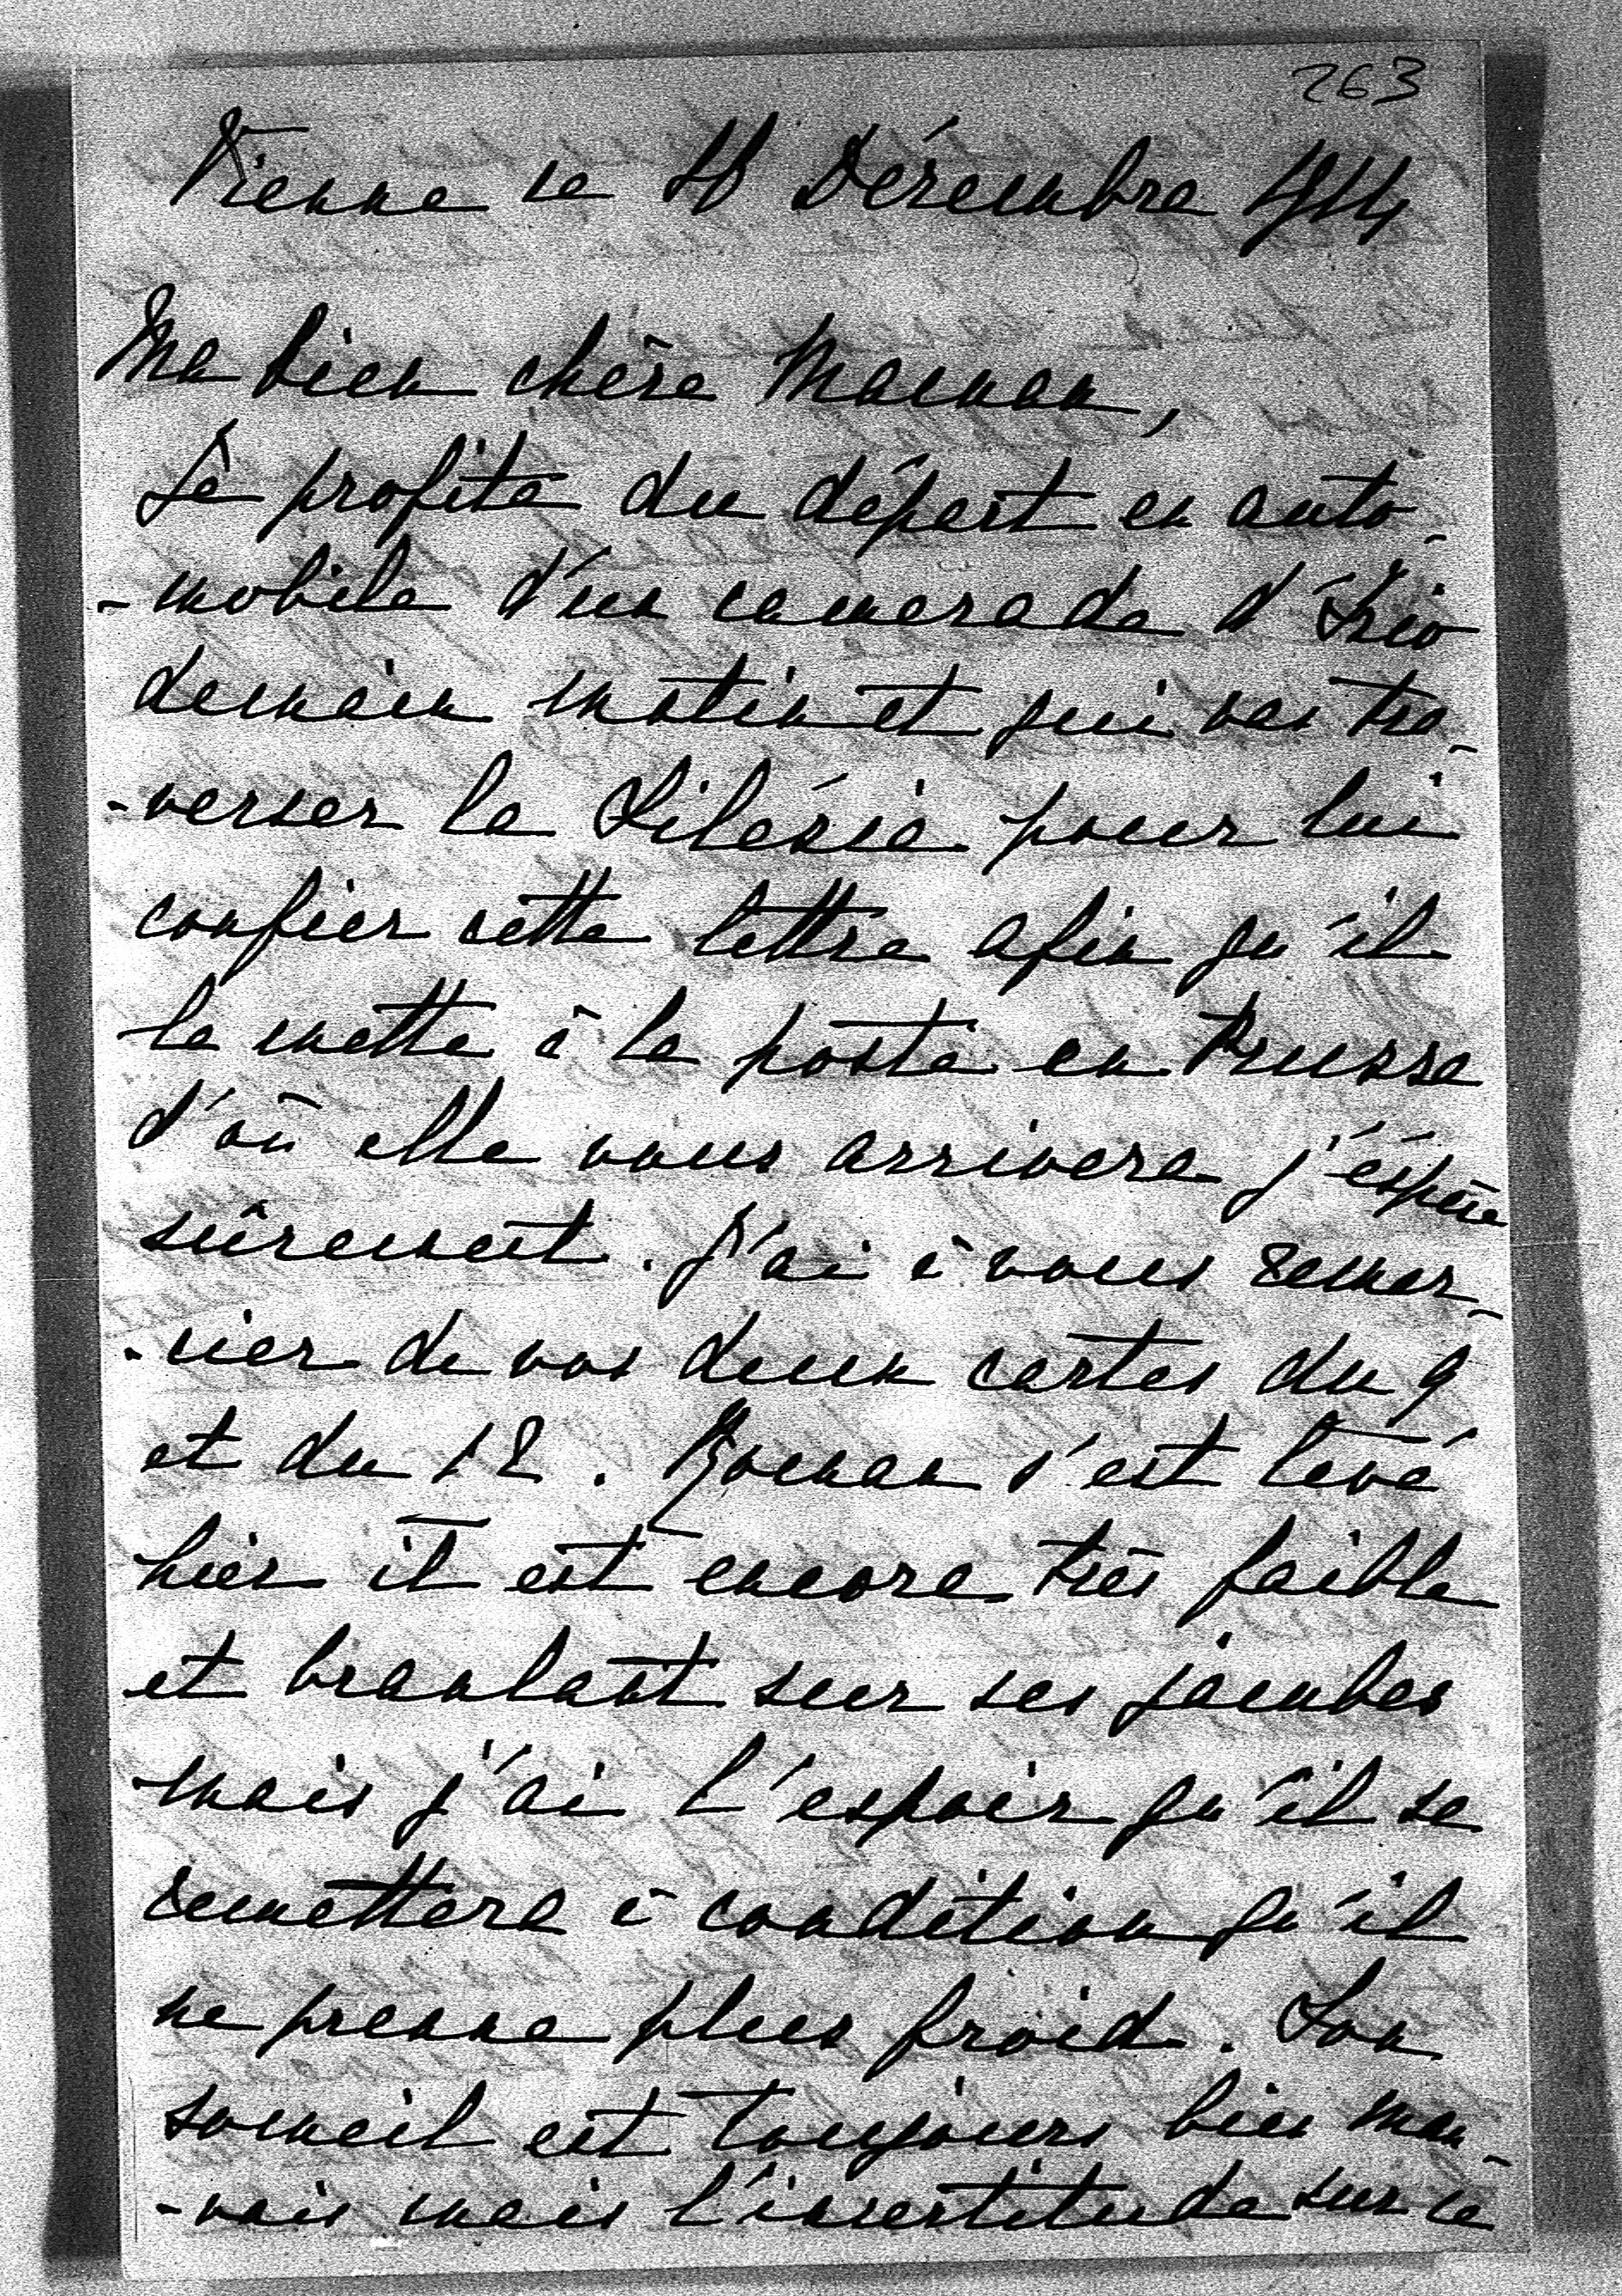 263
Vienne ce 18 Décembre 1914
Ma bien chère Maman,
Je profite du départ en auto-
-mobile d'un camerade d'ici
demain matin et qui vas tra-
-verser la Silésie pour lui
confier cette lettre afin qu'il
la mette à la poste en Prusse
d'où elle vous arrivera j'éspère
sûrement. J'ai à vous remer-
-cier de vos deux cartes du 9
et du 12. Roman s'est levé
hier il est encore très faible
et branlant sur ses jambes
mais j'ai l'espoir qu'il se
remettera à condition qu'il
ne prenne plus froid. Son
someil est toujours bien mau-
-vais mais l'incertitude sur ce